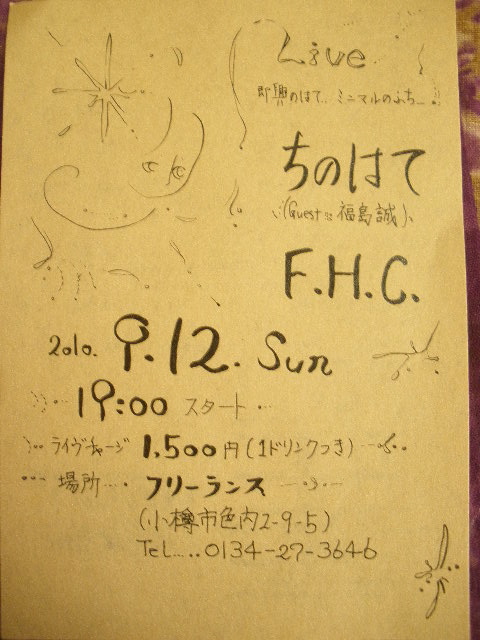 Live
即興のはて… ミニマルのふち…
ちのはて
(Guest 福島誠)
F.H.C.
2010. 9.12. Sun
19:00 スタート
ライヴチャージ 1,500円(1ドリンクつき)
場所… フリーランス
(小樽市色内2-9-5)
TeL.... 0134-27-3646